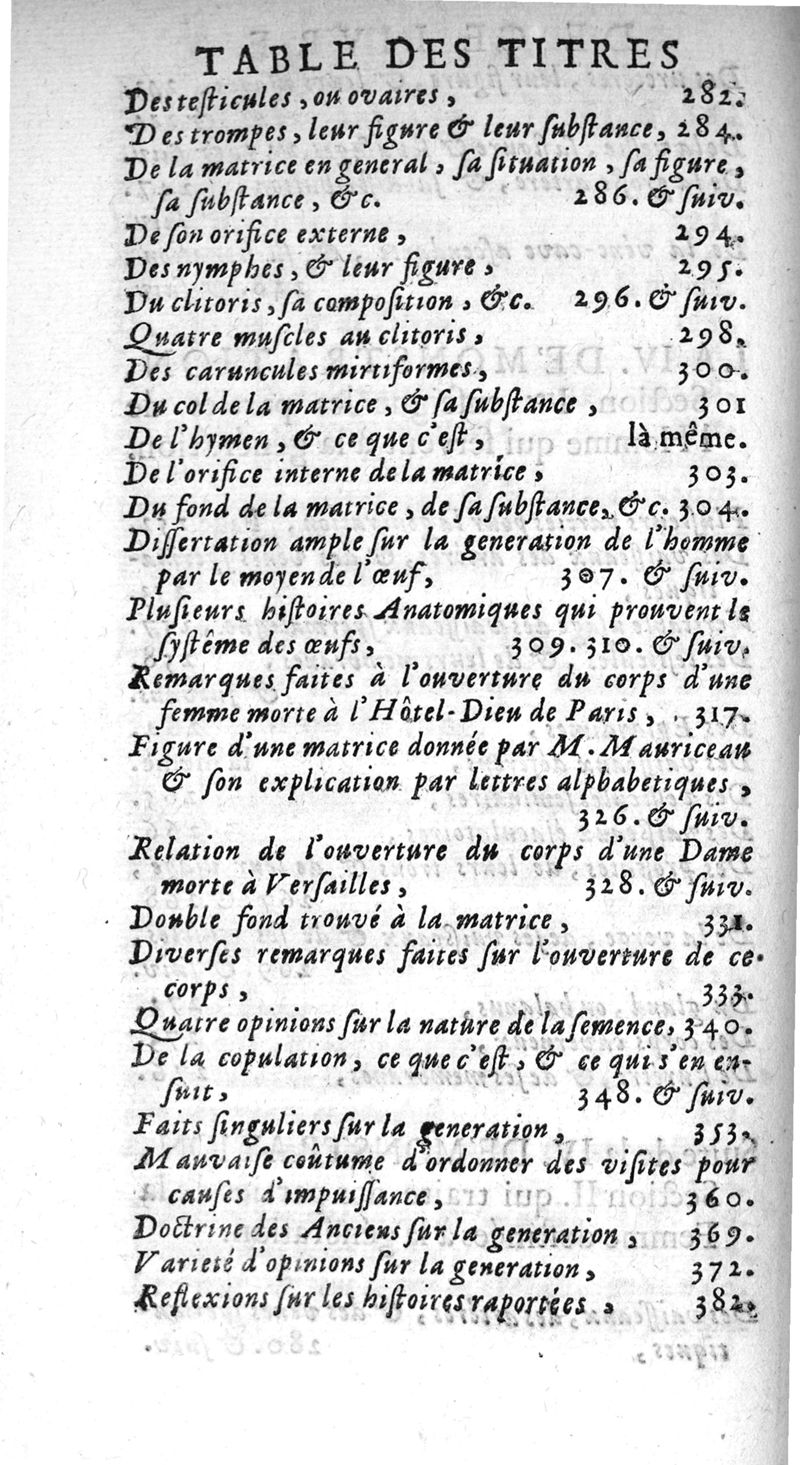 TABLE DES TITRES
Des teſticules, ou ovaires, 282.
Des trompes, leur figure & leur ſubſtance, 284.
De la matrice en general, ſa ſituation, ſa figure,
ſa ſubſtance, &c. 286. & ſuiv.
De ſon orifice externe, 294.
Des nymphes, & leur figure, 295.
Du clitoris, ſa compoſition, &c. 296. & ſuiv.
Quatre muſcles au clitoris, 298.
Des caruncules mirtiformes, 300.
Du col de la matrice, & ſa ſubſtance, 301
De l'hymen, & ce que c'eſt, là même.
De l'orifice interne de la matrice, 303.
Du fond de la matrice, de ſa ſubſtance, &c. 304.
Diſſertation ample ſur la generation de l'homme
par le moyen de l'œuf, 307. & ſuiv.
Pluſieurs hiſtoires Anatomiques qui prouvent le
ſyſtême des œufs, 309. 310. & ſuiv.
Remarques faites à l'ouverture du corps d'une
femme morte à l'Hôtel-Dieu de Paris, 317.
Figure d'une matrice donnée par M. Mauriceau
& ſon explication par lettres alphabetiques,
326. & ſuiv.
Relation de l'ouverture du corps d'une Dame
morte à Verſailles, 328. & ſuiv.
Double fond trouvé à la matrice, 331.
Diverſes remarques faites ſur l'ouverture de ce
corps, 333.
Quatre opinions ſur la nature de la ſemence, 340.
De la copulation, ce que c'eſt, & ce qui s'en en-
ſuit, 348. & ſuiv.
Faits ſinguliers ſur la generation, 353.
Mauvaiſe coûtume d'ordonner des viſites pour
cauſes d'impuiſſance, 360.
Doctrine des Anciens ſur la generation, 369.
Varieté d'opinions ſur la generation, 372.
Reflexions ſur les hiſtoires raportées, 382.